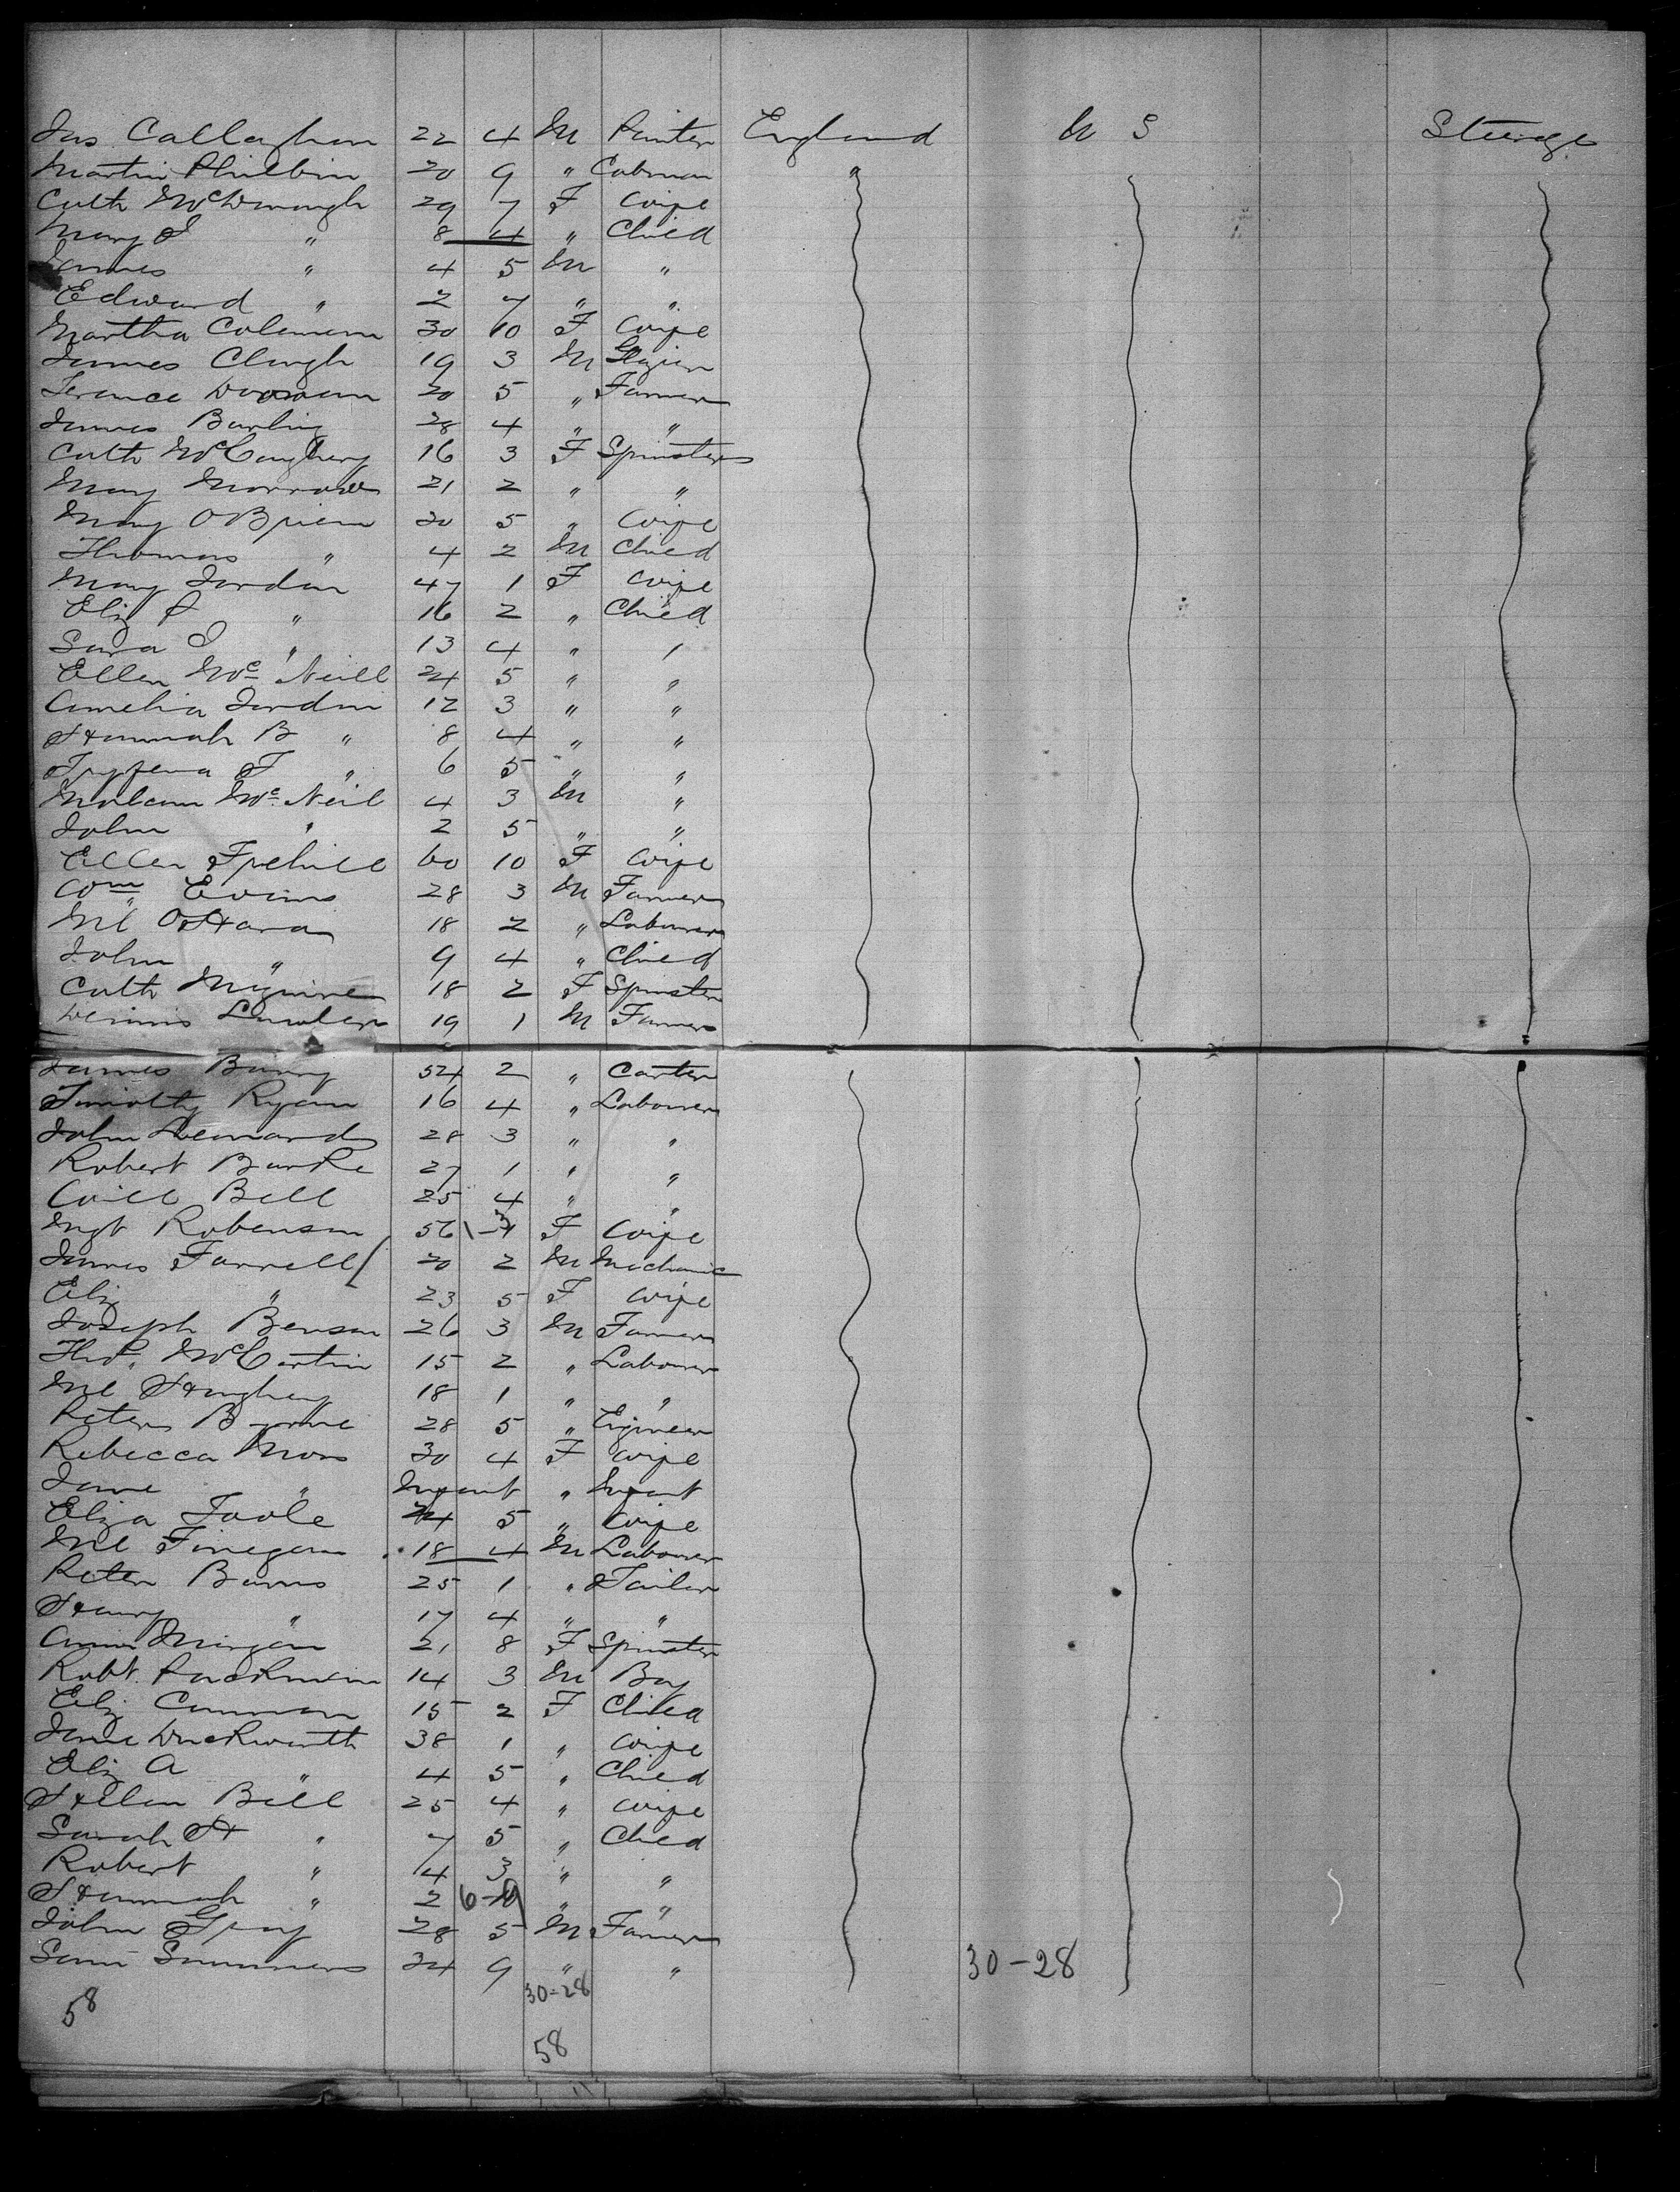 Jas Callaghan 22 4 M Painter England U S Steerage
Martin Philbin 20 9 " Cabman "
Cath McDonough 29 7 F Wife
Mary J " 8 4 " Child
James " 4 5 M "
Edward " 2 7 " "
Martha Coleman 30 10 F Wife
James Clough 19 3 M Glazier
Terence 20 5 " Farmer
James Burling 28 4 " "
Cath McCaughery 16 3 F Spinster
Mary Morrow 21 2 " "
Mary O'Brien 30 5 " Wife
Thomas " 4 2 M Child
Mary Jordan 47 1 F Wife
Eliz J " 16 2 " Child
Sara J " 13 4 " "
Ellen Mc Neill 24 5 " "
Amelia Jordan 12 3 " "
Hannah B " 8 4 " "
Tryfena F " 6 5 " "
Malcum Mc Neil 4 3 M "
John " 2 5 " "
Ellen 60 10 F Wife
Wm Evins 28 3 M Farmer
Ml O'Hara 18 2 " Labourer
John " 9 4 " Child
Cath Mguire 18 2 F Spinster
Dennis Lawler 19 1 M Farmer
James Barry 54 2 " Carter
Timothy Ryan 16 4 " Labourer
John Leonard 28 3 " "
Robert Burke 27 1 " "
Will Bell 25 4 " "
Mgt Robenson 56 F Wife
James Farrell 20 2 M Mechanic
Eliz " 23 5 F Wife
Joseph Benson 26 3 M Farmer
Thos. McCartin 15 2 " Labourer
Ml Haughey 18 1 " "
Peter Byrne 28 5 " Engineer
Rebecca Moss 30 4 F Wife
Jane " Infant " Infant
Eliza Toole 24 5 " Wife
Ml Finegan 18 4 M Labourer
Peter Burns 25 1 " Tailor
Henry " 17 4 " "
Annie Morgan 21 8 F Spinster
Robt. Packman 14 3 M Boy
Eliz Cannon 15 2 F Child
Jane Duckworth 38 1 " Wife
Eliz A " 4 5 " Child
Hellen Bell 25 4 " Wife
Sarah H " 7 5 " Child
Robert " 4 3 " "
Hannah " 2 " "
John Gray 28 5 M Farmer
Sam Summers 34 9 " " 30-28
30-28
58
58